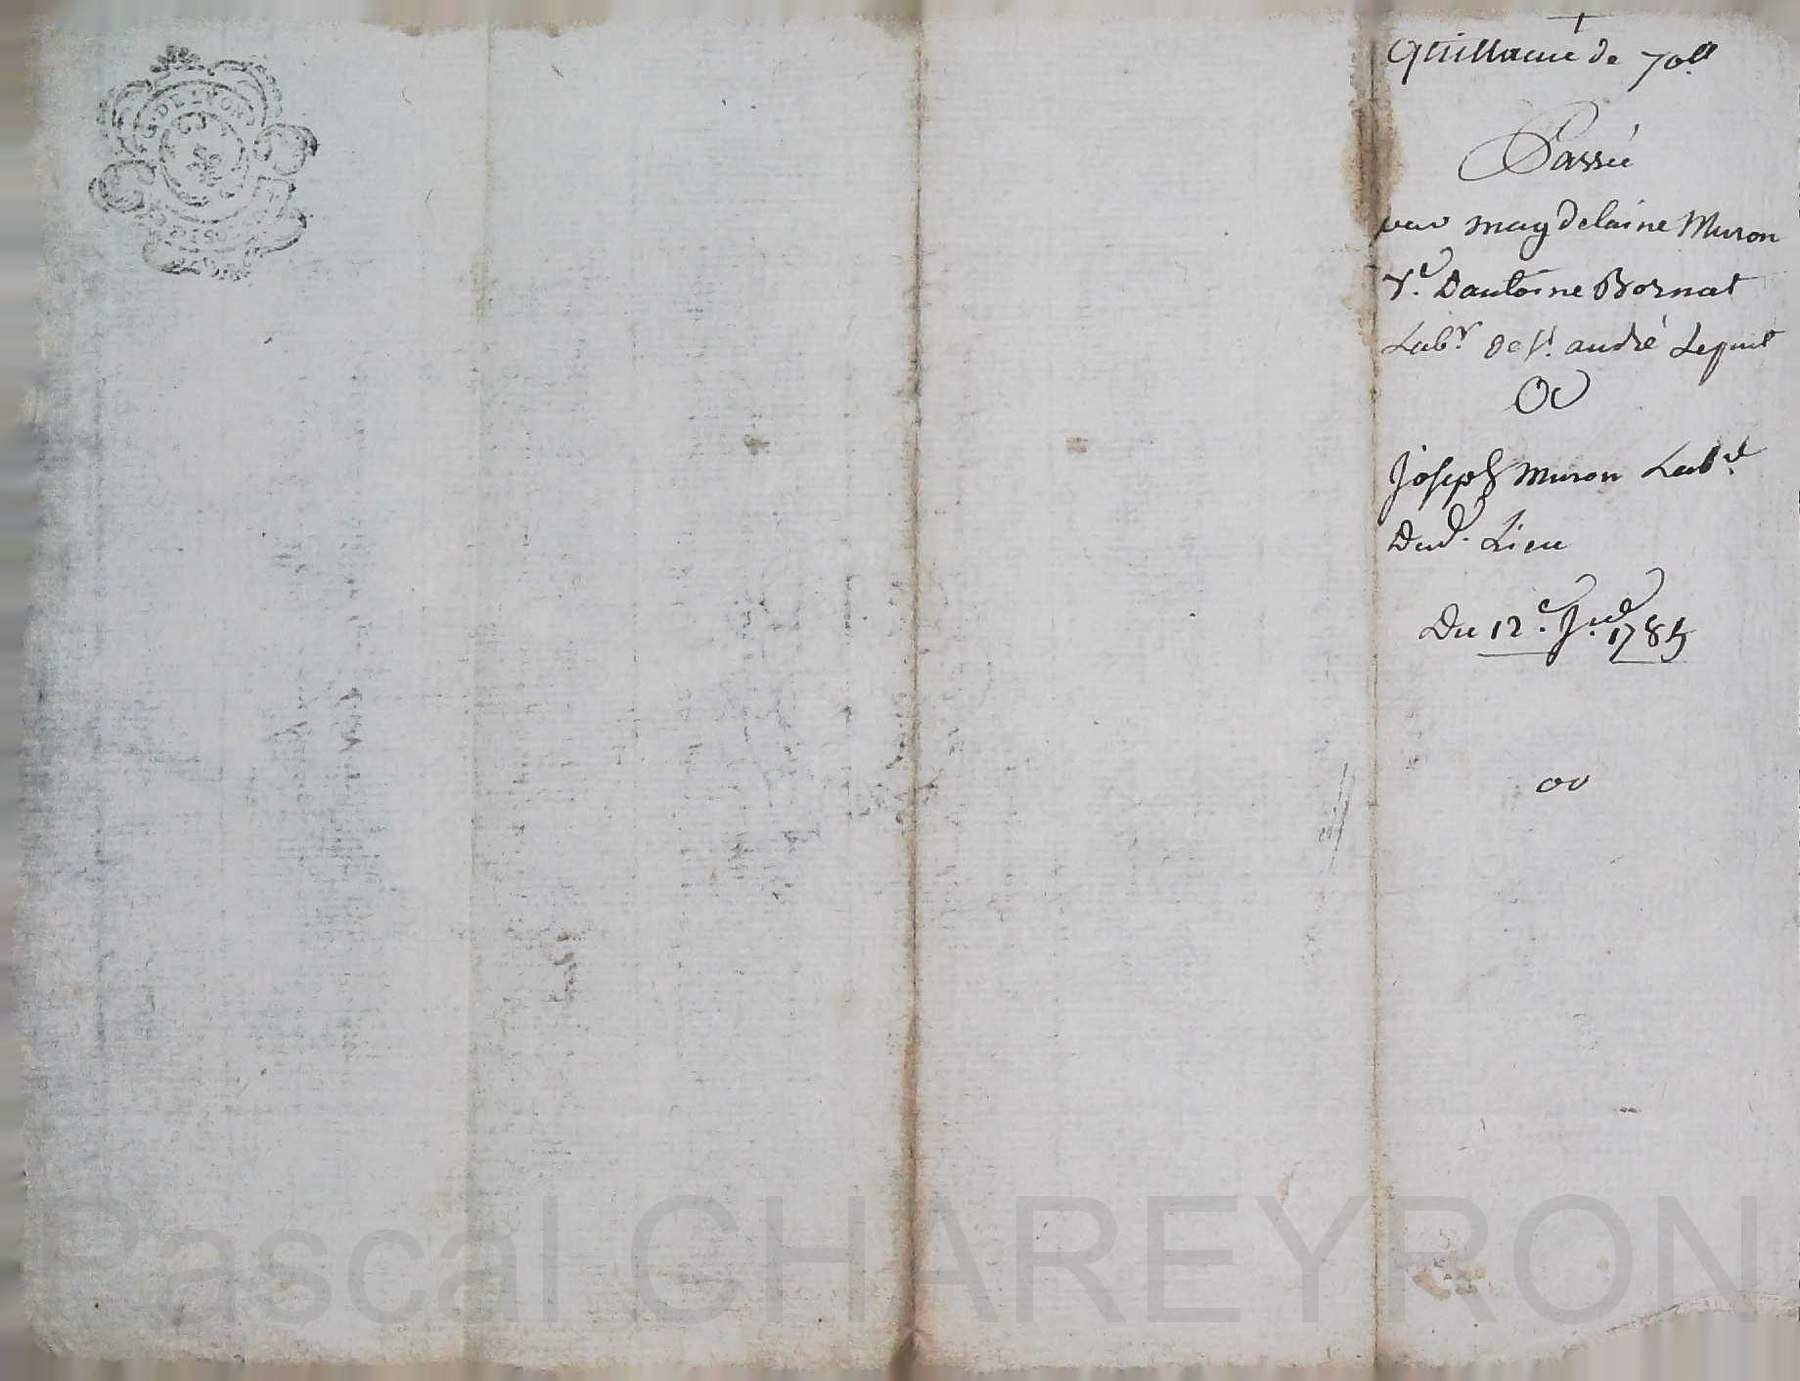 DE LYON
Quittance de 70ll
Passée
par magdelaine Muron
Ve. Dantoine Bornat
Labr. de St. andré Lepuit
a
joseph muron Labr.
Dud. Lieu
Du 12e. Jer. 1785
Pascal CHAREYRON